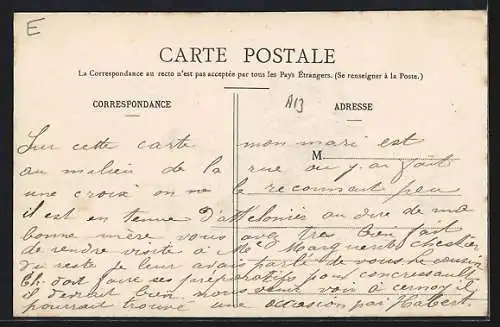 E
CARTE POSTALE
La Correspondance au recto n'est pas acceptée par tous les Pays Étrangers. (Se renseigner à la Poste.)
CORRESPONDANCE
A13
ADRESSE
M
Sur cette carte mon mari est
au milieu de la rue ou j'ai fait
une croix on ne le reconnait peu
il est en tenue au dire de ma
bonne mère vous avez très bien fait
de rendre visite à Me Marguerite
du reste je leur avais parlé de vous le cousin
Ch. doit faire ses préparatifs pour
il devrait bien nous venir voir à cernoy il
pourrait trouver une occasion par Habert.